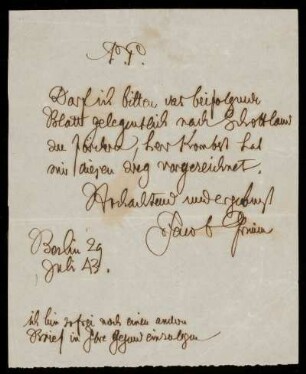 P. P.
Darf ich bitten das beifolgende
Blatt gelegentlich nach Schottland
zu fördern, Herr Kombst hat
mir diesen Weg vorgezeichnet.
Hochachtend und ergebenst
Jacob Grimm
Berlin 29
Juli 43.
ich bin so frei noch einen andern
Brief in Ihre Gegend einzulegen